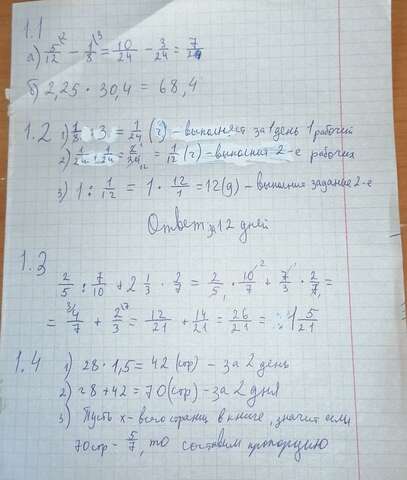 1.1
а) 5/12 \2 − 1/8 \3 = 10/24 − 3/24 = 7/24
б) 2,25 · 30,4 = 68,4
1.2 1) 1/8 : 3 = 1/24 (ч) – выполняет за 1 день 1 рабочий
2) 1/24 + 1/24 = 2/24 12 = 1/12 (ч) – выполнит 2-е рабочих
3) 1 : 1/12 = 1 · 12/1 = 12 (д) – выполнит задание 2-е
Ответ: 12 дней
1.3
2/5 : 7/10 + 2 1/3 · 2/7 = 2/5 1 · 10/7 2 + 7/3 · 2/7 1 =
= 3\ 4/7 + 2/3 \7 = 12/21 + 14/21 = 26/21 = 1 5/21
1.4 1) 28 · 1,5 = 42 (стр) – за 2 день
2) 28 + 42 = 70 (стр) – за 2 дня
3) Пусть х – всего страниц в книге, значит если
70 стр – 5/7, то составим пропорцию